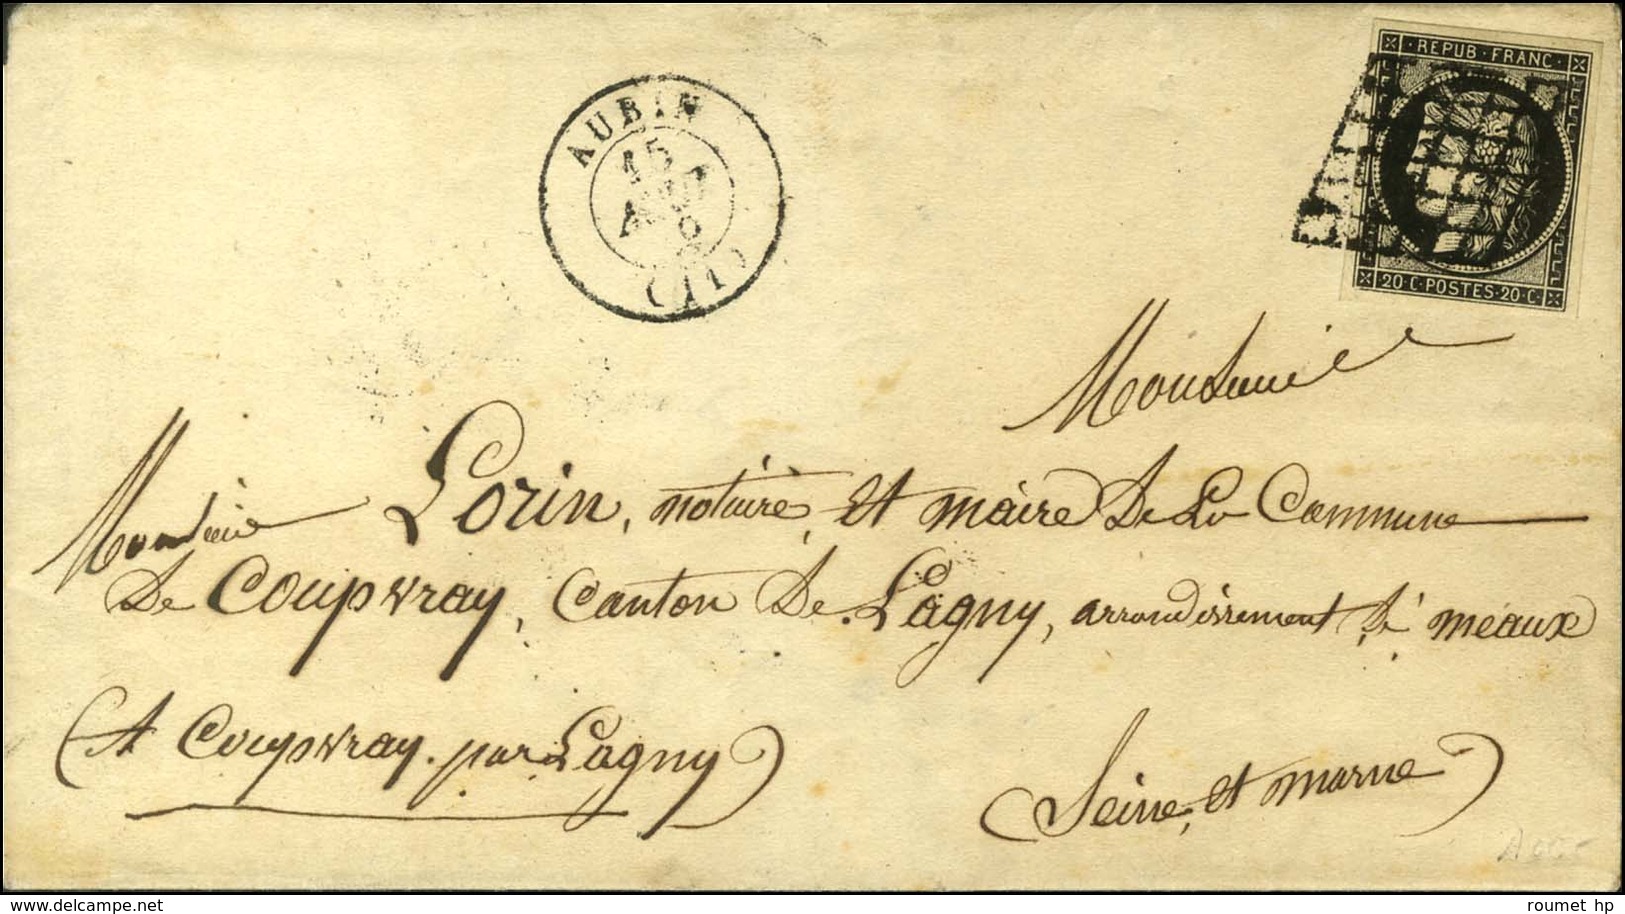 REPUB·FRANC
20·C·POSTES·20·C
AUBIN
15
(11)
Monsieur
Monsieur Lorin, notaire, et maire de la Commune
de Coupvray, Canton de Lagny, arrondissement de meaux
(A Coupvray. par Lagny)
(Seine, et marne)
delcampe.net
roumet_hp